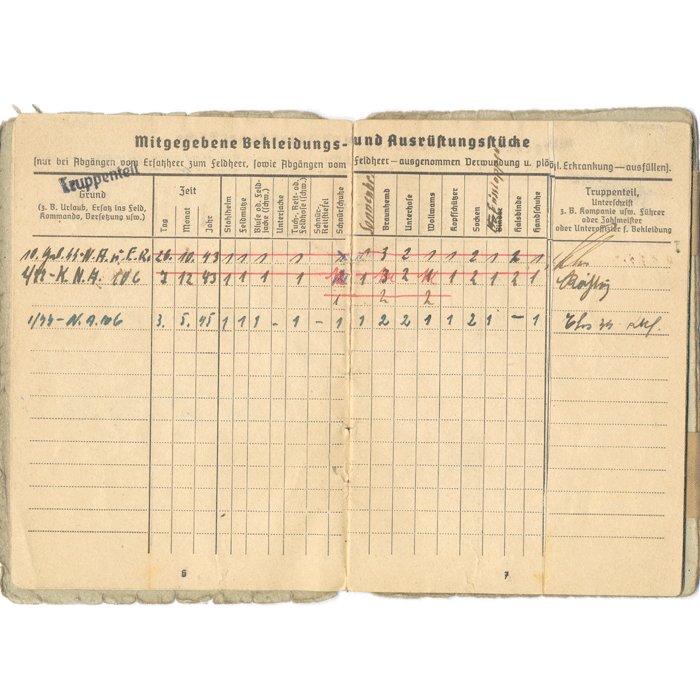 Mitgegebene Bekleidungs- und Ausrüstungsstücke
(nur bei Abgängen vom Ersatzheer zum Feldheer, sowie Abgängen vom Feldheer — ausgenommen Verwundung u. plötzl. Erkrankung — ausfüllen).
Truppenteil
Grund
(z. B. Urlaub, Ersatz ins Feld,
Kommando, Versetzung usw.)
Zeit
Tag
Monat
Jahr
Stahlhelm
Feldmütze
Bluse od. Feld-
jacke (schw.)
Unterjacke
Tuch-, Reit- od.
Feldhose (schw.)
Schnür-,
Reitstiefel
Schnürschuhe
Braunhemd
Unterhose
Wollwams
Kopfschützer
Socken
Halsbinde
Handschuhe
Truppenteil,
Unterschrift
z. B. Kompanie usw. Führer
oder Zahlmeister
oder Unteroffizier f. Bekleidung
26. 10. 43 1 1 1 1 1 1 1 1 3 2 1 1 2 1 2 1
4/44-K.N.A. 106 7 12 43 1 1 1 1 1 2 2 1 2 1
1 2 2
1/44-N.A. 106 3. 5. 45 1 1 1 - 1 - 1 1 2 2 1 1 2 1 - 1
6
7